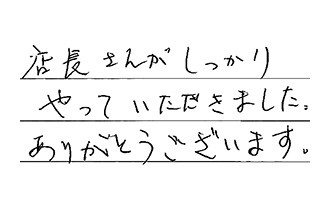 店長さんがしっかり
やっていただきました。
ありがとうございます。